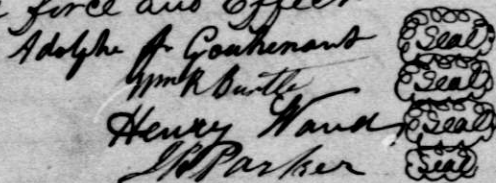 force and Effect
Adolphe Gouhenant Seal
Wm R Burtle Seal
Henry Wand Seal
J B Parker Seal